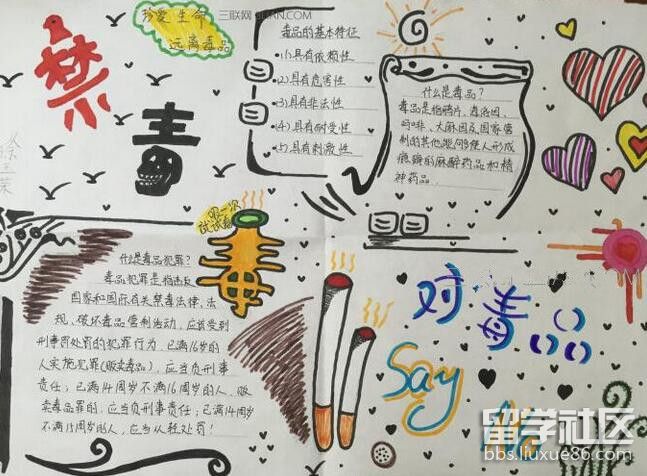 珍爱生命
远离毒品
三联网 3LIAN.COM
禁
毒
毒品的基本特征
(1)具有依赖性
(2)具有危害性
(3)具有非法性
(4)具有耐受性
(5)具有刺激性
什么是毒品?
毒品是指鸦片、海洛因、
吗啡、大麻因及国家管
制的其他能够使人形成
瘾癖的麻醉药品和精
神药品。
吸一次
试试看
毒
什么是毒品犯罪?
毒品犯罪是指违反
国家和国际有关禁毒法律、法
规,破坏毒品管制活动,应该受到
刑事处罚的犯罪行为。已满16岁的
人实施犯罪(贩卖毒品),应当负刑事
责任;已满14周岁不满16周岁的人,贩
卖毒品罪的,应当负刑事责任;已满14周岁
不满18周岁的人,应当从轻处罚!
对毒品
Say
No
留学社区
bbs.liuxue86.com